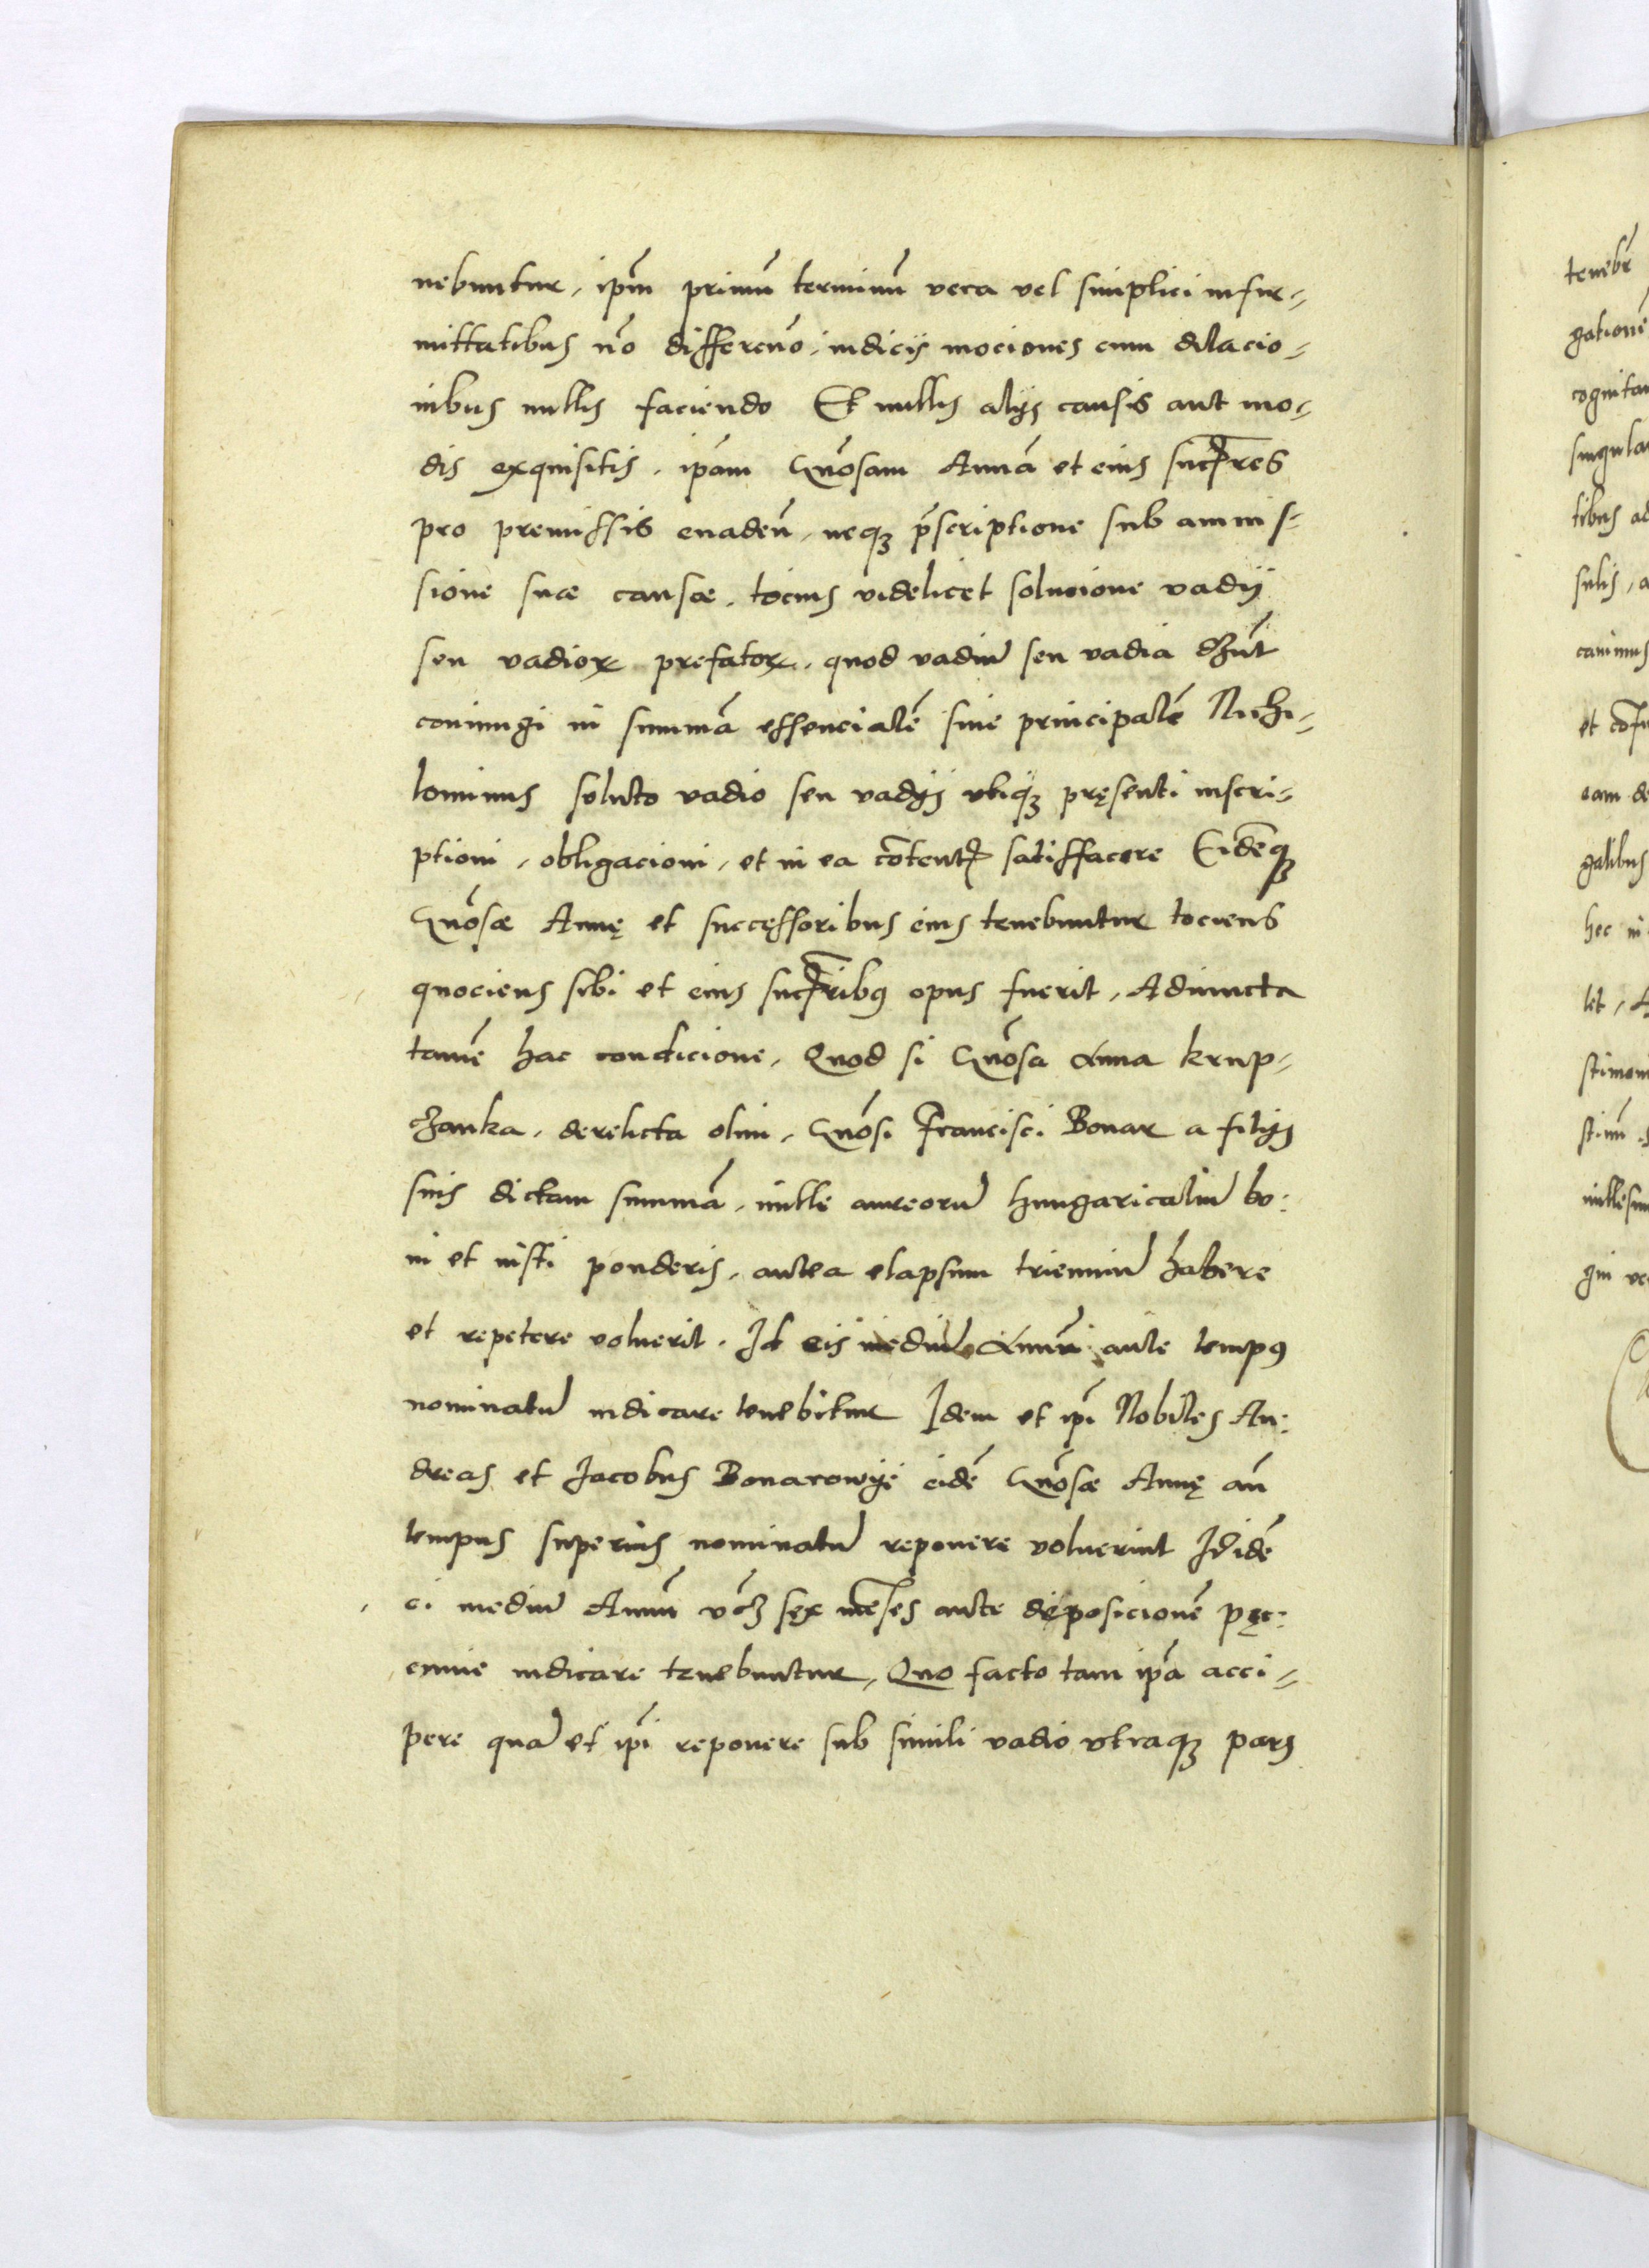 nebuntur, ipm̄ primū terminū vera vel simplici infir=
mittatibus nō differenō, indicijs mociones cum dilacio=
nibus nullis faciendo Et nullis alijs causis aut mo=
dis exquisitis, ipām Gnōsam Annā et eius succres
pro premissis euadeñ, neqꝫ p̄scriptione sub ammis=
sione suæ causæ, tocius videlicet solucione vadij
seu vadioꝝ prefatoꝝ, quod vadiū seu vadia dn̄t
coniungi in summā essencialē siue principalē Nichi=
lominus soluto vadio seu vadijs vbiqꝫ pręsenti inscri=
ptioni, obligacioni, et in ea cōtentꝭ satisffacere Eidēqꝫ
Gnōsæ Annę et successoribus eius tenebuntur tociens
quociens sibi et eius succribꝰ opus fuerit, Adiuncta
tamē hac condicione, Quod si Gnōsa Anna krup=
czanka, derelicta olim, Gnōsi Francisci Bonar a filijs
suis dictam summā, mille aureorū hungaricaliū bo:
ni et iusti ponderis, antea elapsum trienniū habere
et repetere voluerit. Id eis mediū Annū ante tempꝰ
nominatū indicare tenebitur Idem et ipī Nobiles An:
dreas et Jacobus Bonarowye eidē Gnōsæ Annę añ
tempus superius nominatū reponere voluerint Id idē
ei mediū Annū vcꝫ sęx mēses ante deposicionē pęc:
cunie indicare tenebuntur, Quo facto tam ipā acci=
pere quā et ipī reponere sub simili vadio vtraqꝫ pars
tenebr̄
gationē
cognitan
singular
tibus ac
sulis, a
eam de
galibus
hec in
let, A
stimon
millesim